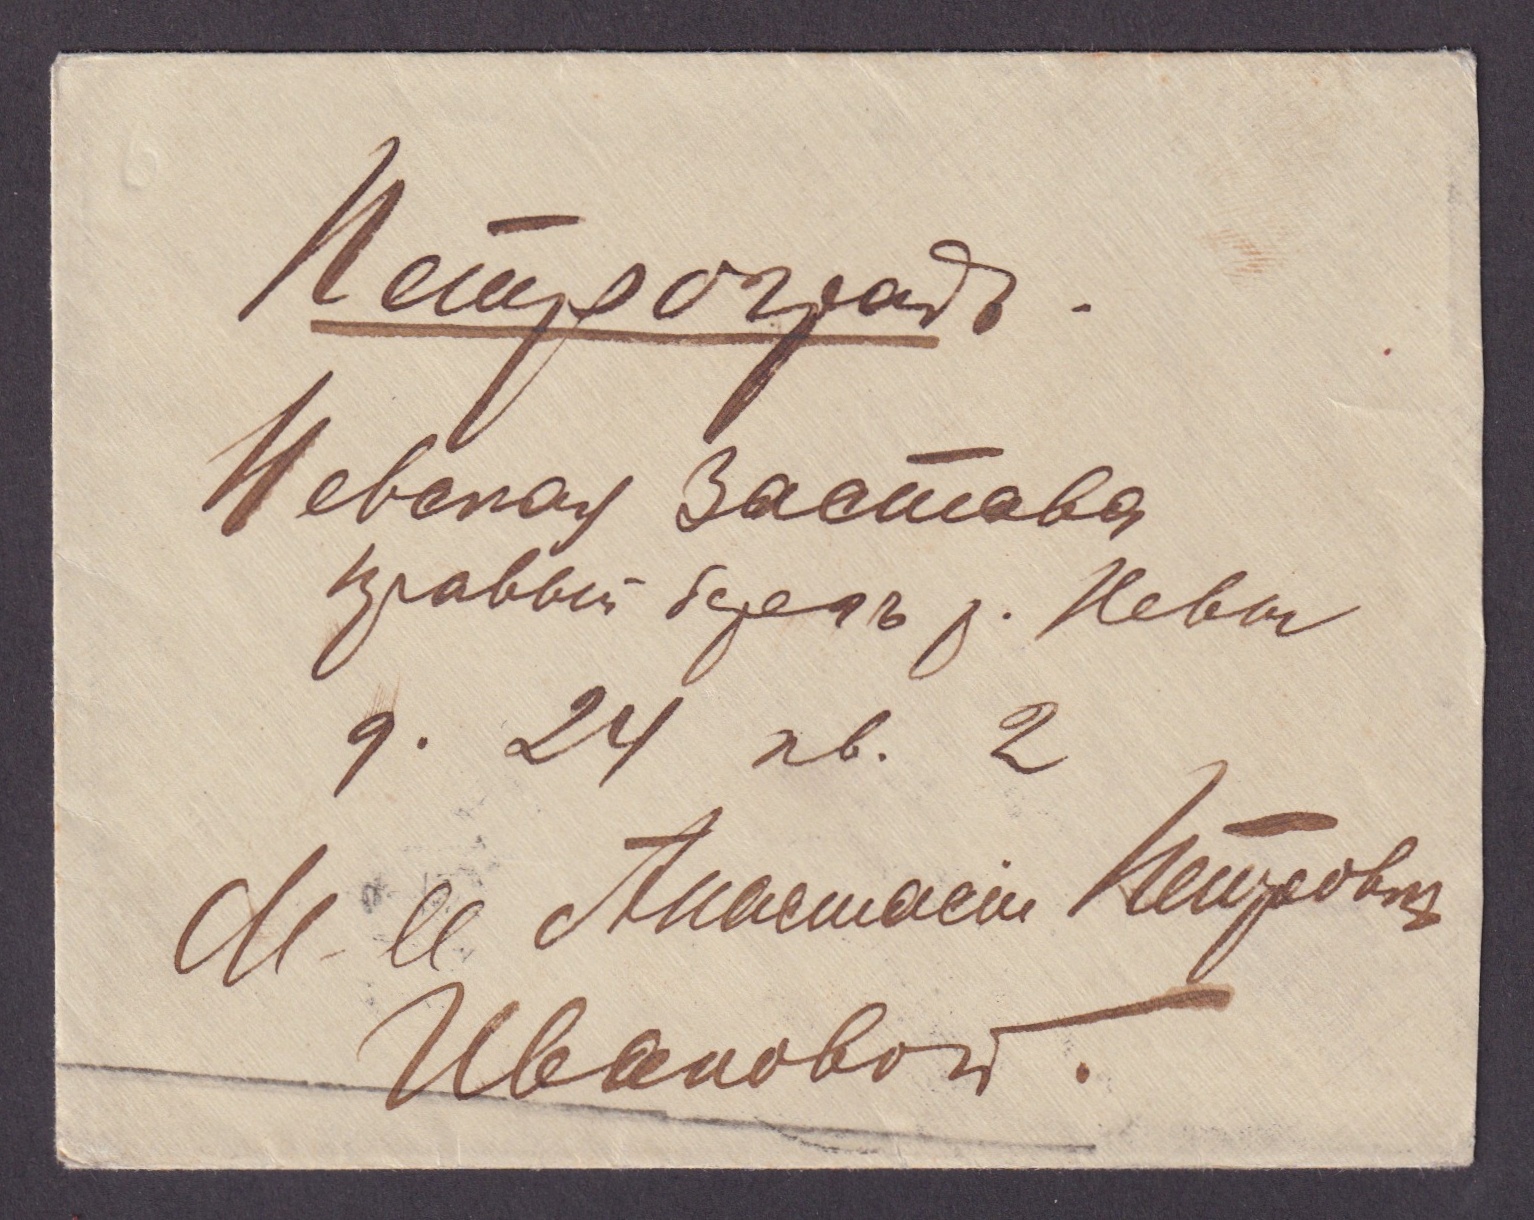 Петроградъ.
Невская Застава
правый берегъ р. Невы
д. 24 кв. 2
М-ll Анастасіи Петровнѣ
Ивановой.